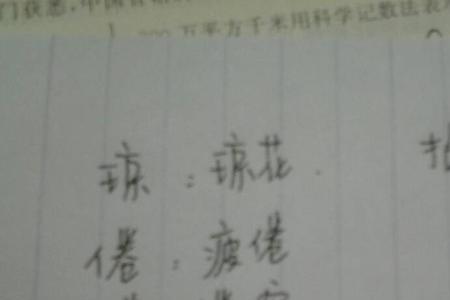 门获悉，中国
300万平方千米用科学记数法表
琼：琼花
倦：疲倦